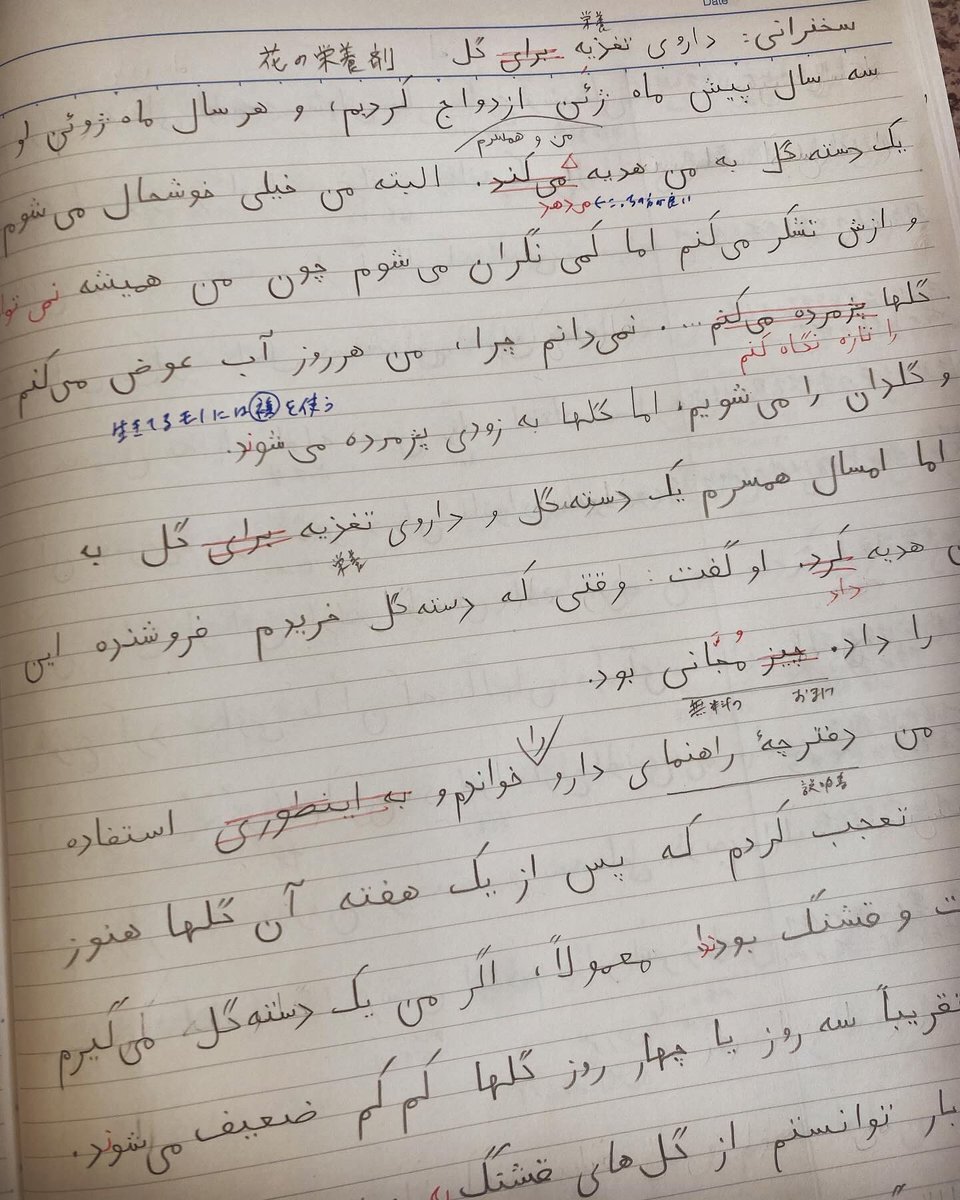 Date
栄養
سخنرانی: داروی تغذیه برای گل 花の栄養剤
سه سال پیش ماه ژئن ازدواج کردیم، و هر سال ماه ژوئن او
من و همسرم
یک دسته گل به من هدیه می‌کند. البته من خیلی خوشحال می‌شوم
می‌دهد
و ازش تشکر می‌کنم اما کمی نگران می‌شوم چون من همیشه نمی‌توا
گلها پژمرده می‌کنم... نمی‌دانم چرا، من هر روز آب عوض می‌کنم
را تازه نگاه کنم
و گلدان را می‌شویم، اما گلها به زودی پژمرده می‌شوند.
生きてるモノには複を使う
اما امسال همسرم یک دسته گل و داروی تغذیه برای گل به
栄養
هدیه کرد. او گفت: وقتی که دسته گل خریدم فروشنده این
داد
را داد. چیز مجّانی بود.
無料の おまけ
من دفترچهٔ راهنمای دارو را خواندم و به اینطوری استفاده
説明書
تعجب کردم که پس از یک هفته آن گلها هنوز
ت و قشنگ بودند معمولاً، اگر من یک دسته گل می‌گیرم
تقریباً سه روز یا چهار روز گلها کم کم ضعیف می‌شوند.
بار توانستم از گل‌های قشنگ به